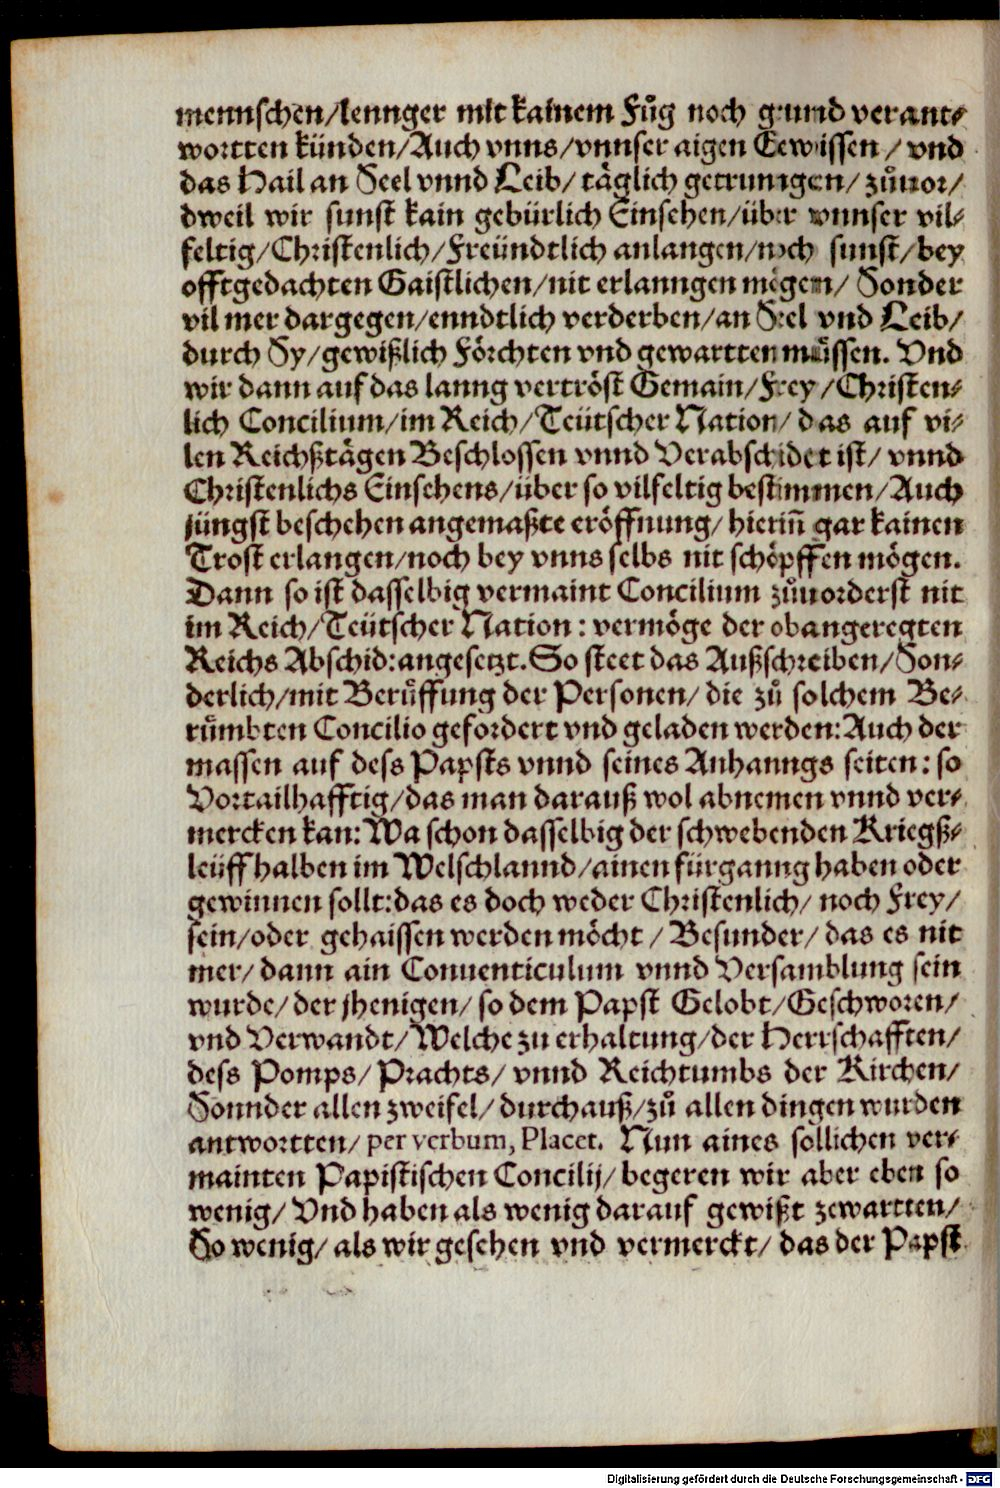 mennschen/lennger mit kainem Fůg noch grund verant⸗
wortten künden/Auch vnns/vnnser aigen Gewissen/vnd
das Hail an Seel vnnd Leib/täglich getrunngen/zůuor/
dweil wir sunst kain gebürlich Einsehen/über vnnser vil⸗
feltig/Christenlich/Freündtlich anlangen/noch sunst/bey
offtgedachten Gaistlichen/nit erlanngen mögen/Sonder
vil mer dargegen/enndtlich verderben/an Seel vnd Leib/
durch Sy/gewißlich Förchten vnd gewartten müssen. Vnd
wir dann auf das lanng vertröst Gemain/Frey/Christen⸗
lich Concilium/im Reich/Teütscher Nation/das auf vi⸗
len Reichßtägen Beschlossen vnnd Verabschidet ist/vnnd
Christenlichs Einsehens/über so vilfeltig bestimmen/Auch
jüngst beschehen angemaßte eröffnung/hierinn̄ gar kainen
Trost erlangen/noch bey vnns selbs nit schöpffen mögen.
Dann so ist dasselbig vermaint Concilium zůuorderst nit
im Reich/Teütscher Nation: vermöge der obangeregten
Reichs Abschid:angesetzt. So steet das Außschreiben/Son⸗
derlich/mit Berůffung der Personen/die zů solchem Be⸗
růmbten Concilio gefordert vnd geladen werden:Auch der
massen auf dess Papsts vnnd seines Anhanngs seiten: so
Vortailhafftig/das man darauß wol abnemen vnnd ver⸗
mercken kan: Wa schon dasselbig der schwebenden Kriegß⸗
leüff halben im Welschlannd/ainen fürganng haben oder
gewinnen sollt:das es doch weder Christenlich/noch Frey/
sein/oder gehaissen werden möcht/Besunder/das es nit
mer/dann ain Conuenticulum vnnd Versamblung sein
wurde/der jhenigen/so dem Papst Gelobt/Geschworen/
vnd Verwandt/Welche zu erhaltung/der Herrschafften/
dess Pomps/Prachts/vnnd Reichtumbs der Kirchen/
Sonnder allen zweifel/durchauß/zů allen dingen wurden
antwortten/per verbum, Placet. Nun aines sollichen ver⸗
mainten Papistischen Concilij/begeren wir aber eben so
wenig/Vnd haben als wenig darauf gewißt zewartten/
So wenig/als wir gesehen vnd vermerckt/das der Papst
Digitalisierung gefördert durch die Deutsche Forschungsgemeinschaft - DFG